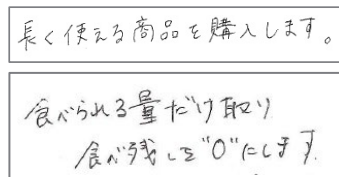 長く使える商品を購入します。
食べられる量だけ取り
食べ残しを"0"にします